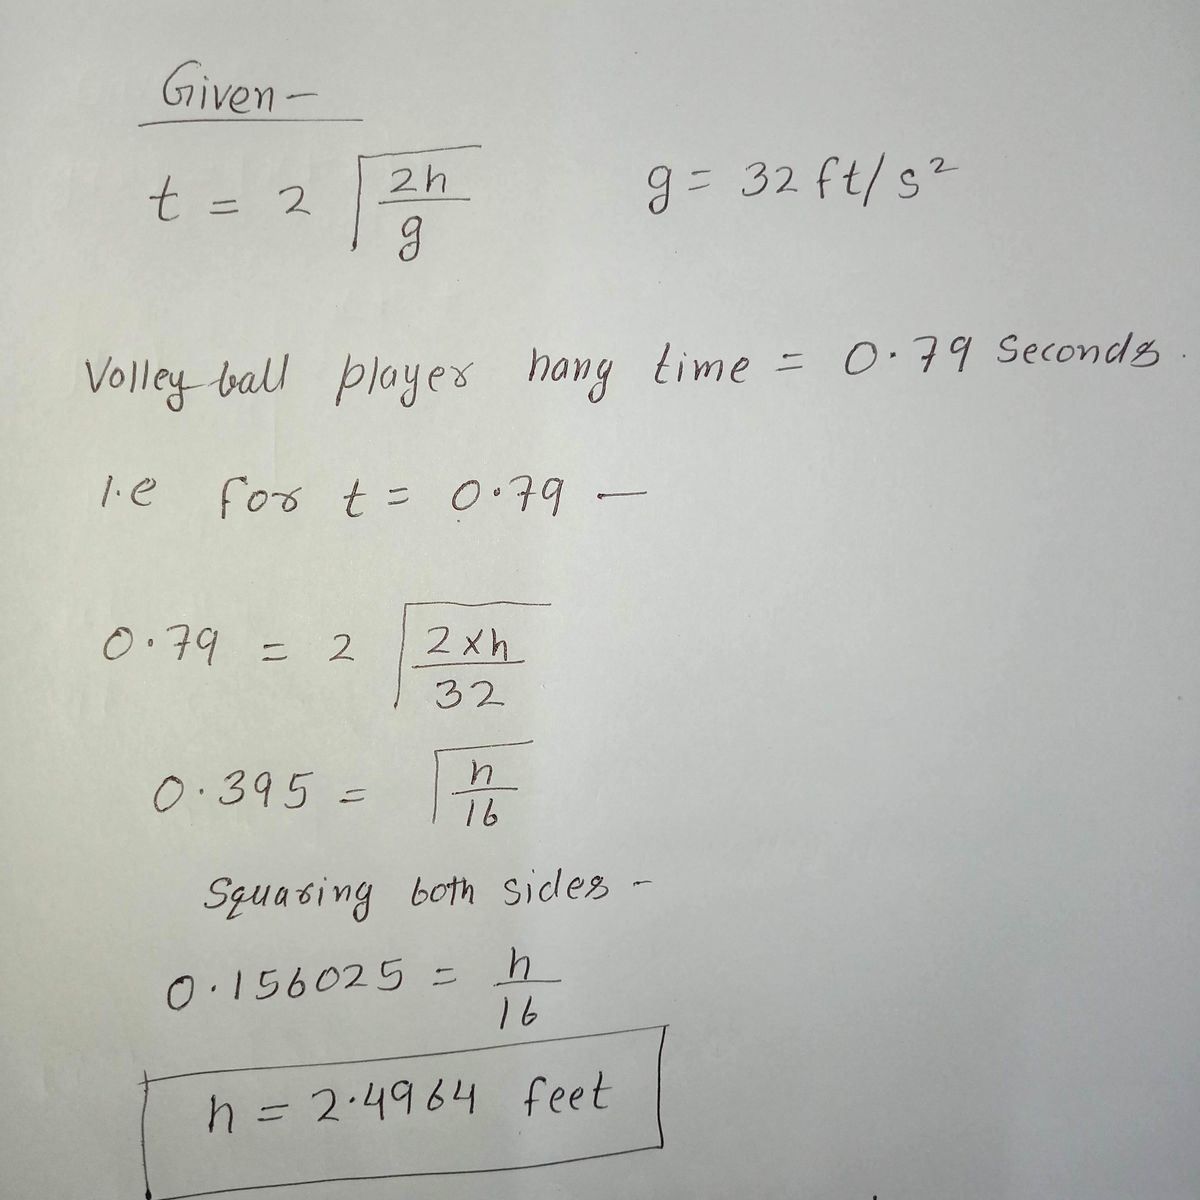 Given -
t = 2 √(2h/g) g = 32 ft/s²
Volleyball player hang time = 0.79 Seconds.
I.e for t = 0.79 —
0.79 = 2 √(2×h/32)
0.395 = √(h/16)
Squaring both sides -
0.156025 = h/16
h = 2.4964 feet